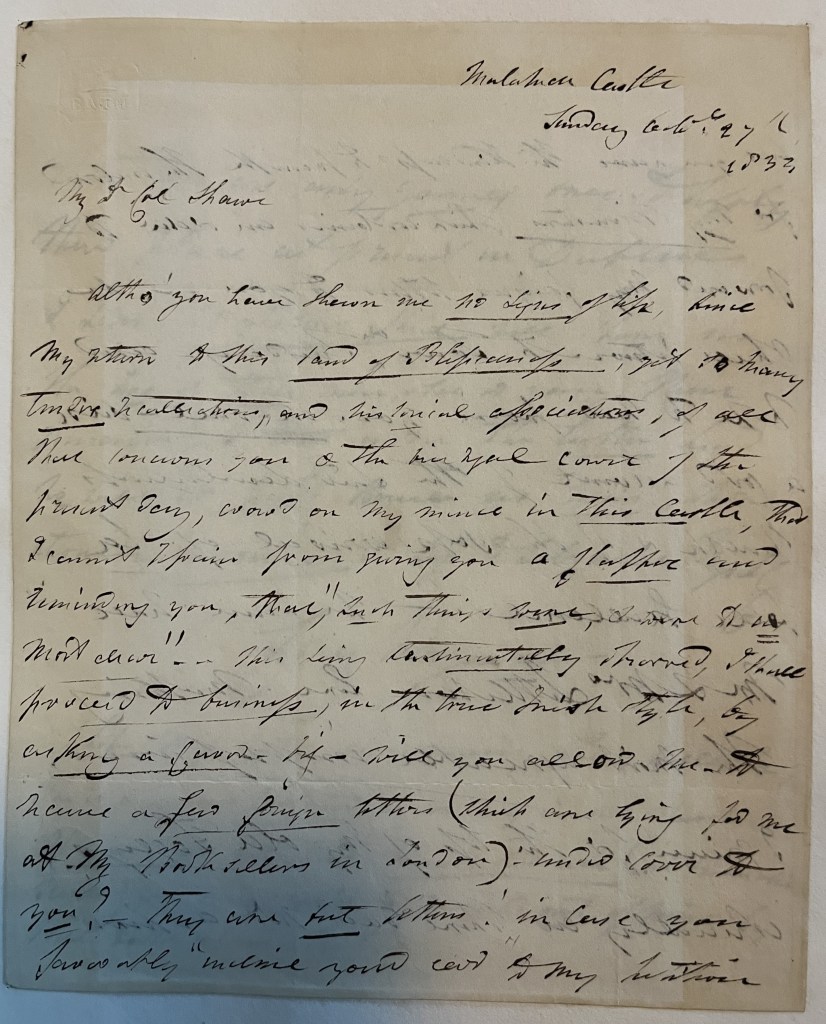 Malahide Castle
Sunday Octr. 27th
1833
My Dr Col Shawe
Altho' you have shewn me no signs of life, since
My return to this land of Blessedness, yet so many
tender recollections, and historical associations, of all
that concerns you & the vice regal court of the
present day, crowd on my mind in this Castle, that
I cannot refrain from giving you a flapper and
reminding you, that "such things were, & were to me
most dear" - - this being sentimentally observed, I shall
proceed to business, in the true Irish style, by
asking a favor - viz - will you allow me to
have a few foreign letters (which are lying for me
at My Booksellers in London) under cover to
you? - They are but letters! in case you
favorably "incline your ear" to my petition